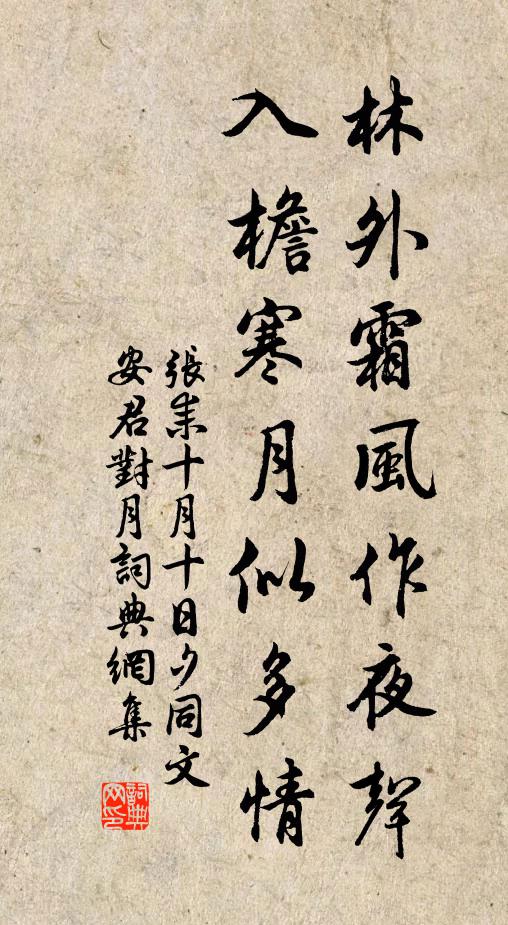 林外霜風作夜聲
入檐寒月似多情
張耒十月十日夕同文
安君對月詞典網集
詞典网印